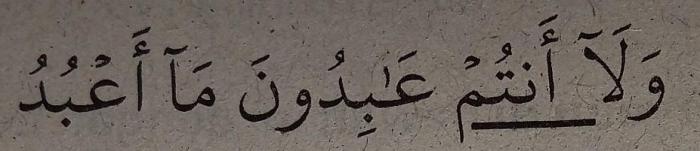 وَلَآ أَنتُمْ عَـٰبِدُونَ مَآ أَعْبُدُ